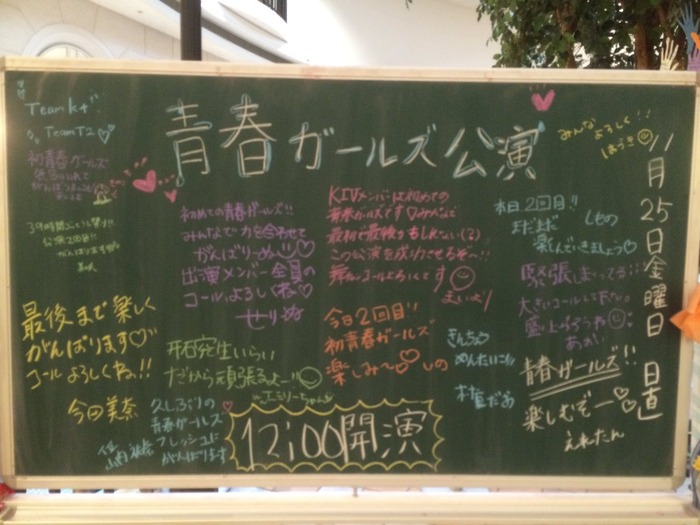 Team K4
Team T2
青春ガールズ公演
みんなよろしく!!
11月25日金曜日 日直
初青春ガールズ
公演2回目!!
がんばります
初めての青春ガールズ!!
みんなで力を合わせて
がんばりーぬ
出演メンバー全員の
コールよろしくね♡
せりぬ
KIVメンバーは初めての
青春ガールズです♡みんなで
最初で最後かもしれない(?)
この公演を成功させるぞー!!
コールよろしくです
まいこ
本日2回目!!
まだまだ
楽しんでいきましょう♡
しなもん
緊張しまくってる
大きいコールして下さい。
盛り上がろうね
最後まで楽しく
がんばります♡
コールよろしくね!!
今田美奈
研究生いらい
だから頑張るよー!!
エミリーちゃん
今日2回目!!
初青春ガールズ
楽しみ〜♡しの
きんちょう
めんたいこ!!
青春ガールズ!!
楽しむぞー♡
えれたん
久しぶりの
青春ガールズ
フレッシュに
がんばります
12:00開演